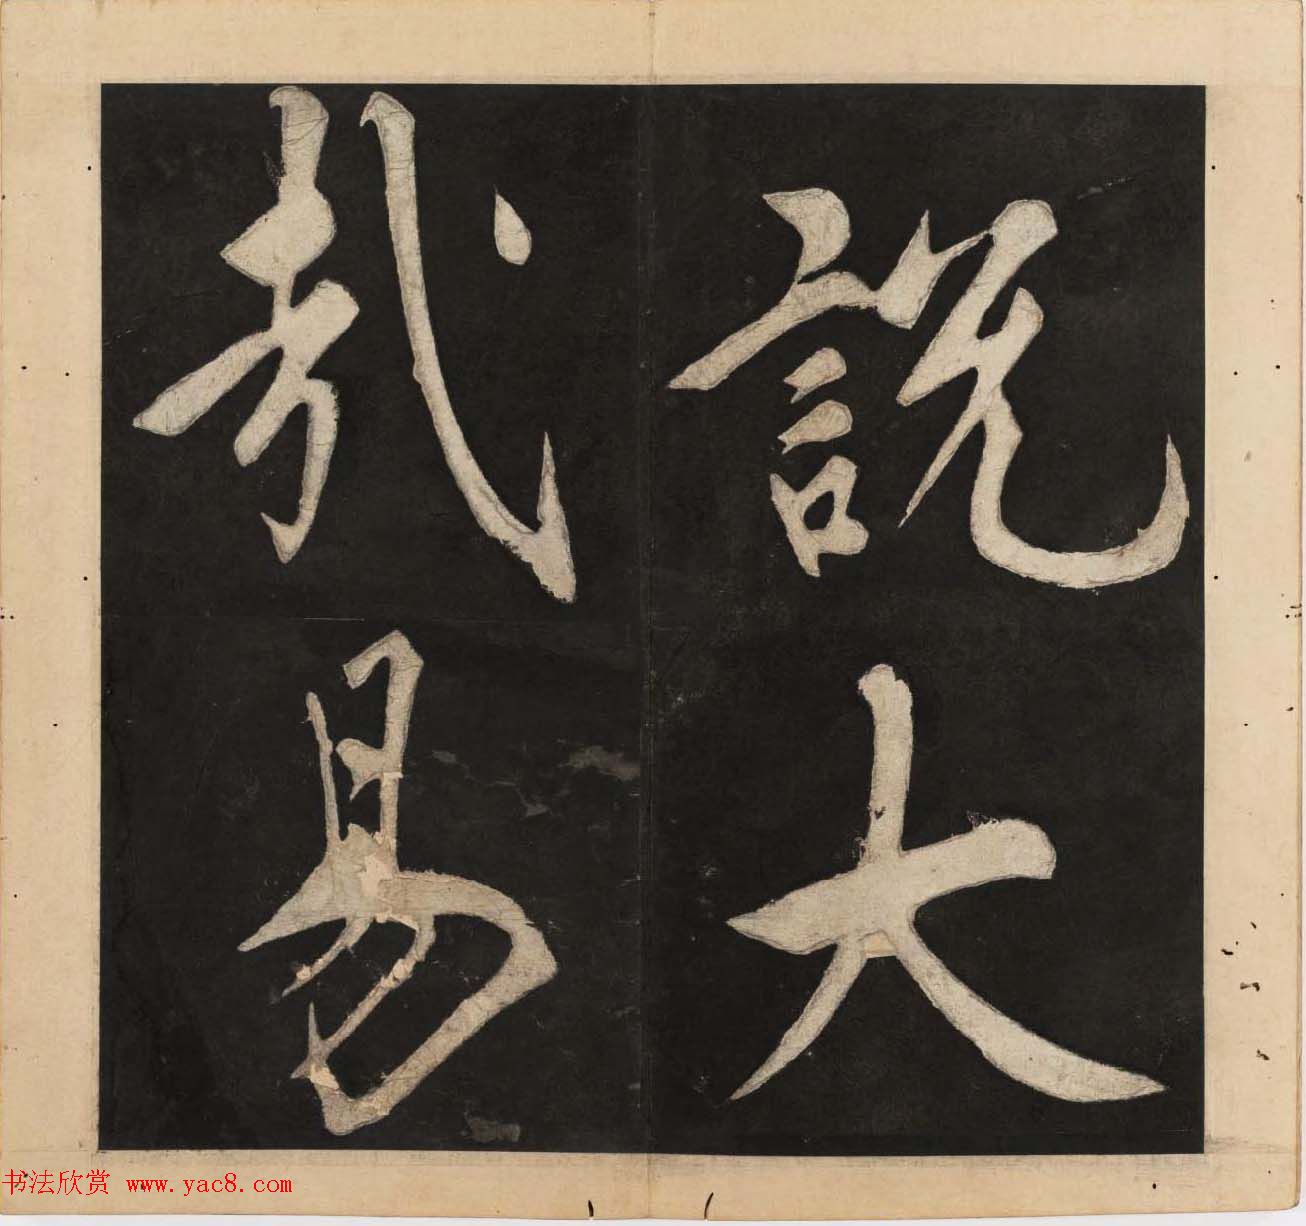 說大
哉易
书法欣赏 www.yac8.com